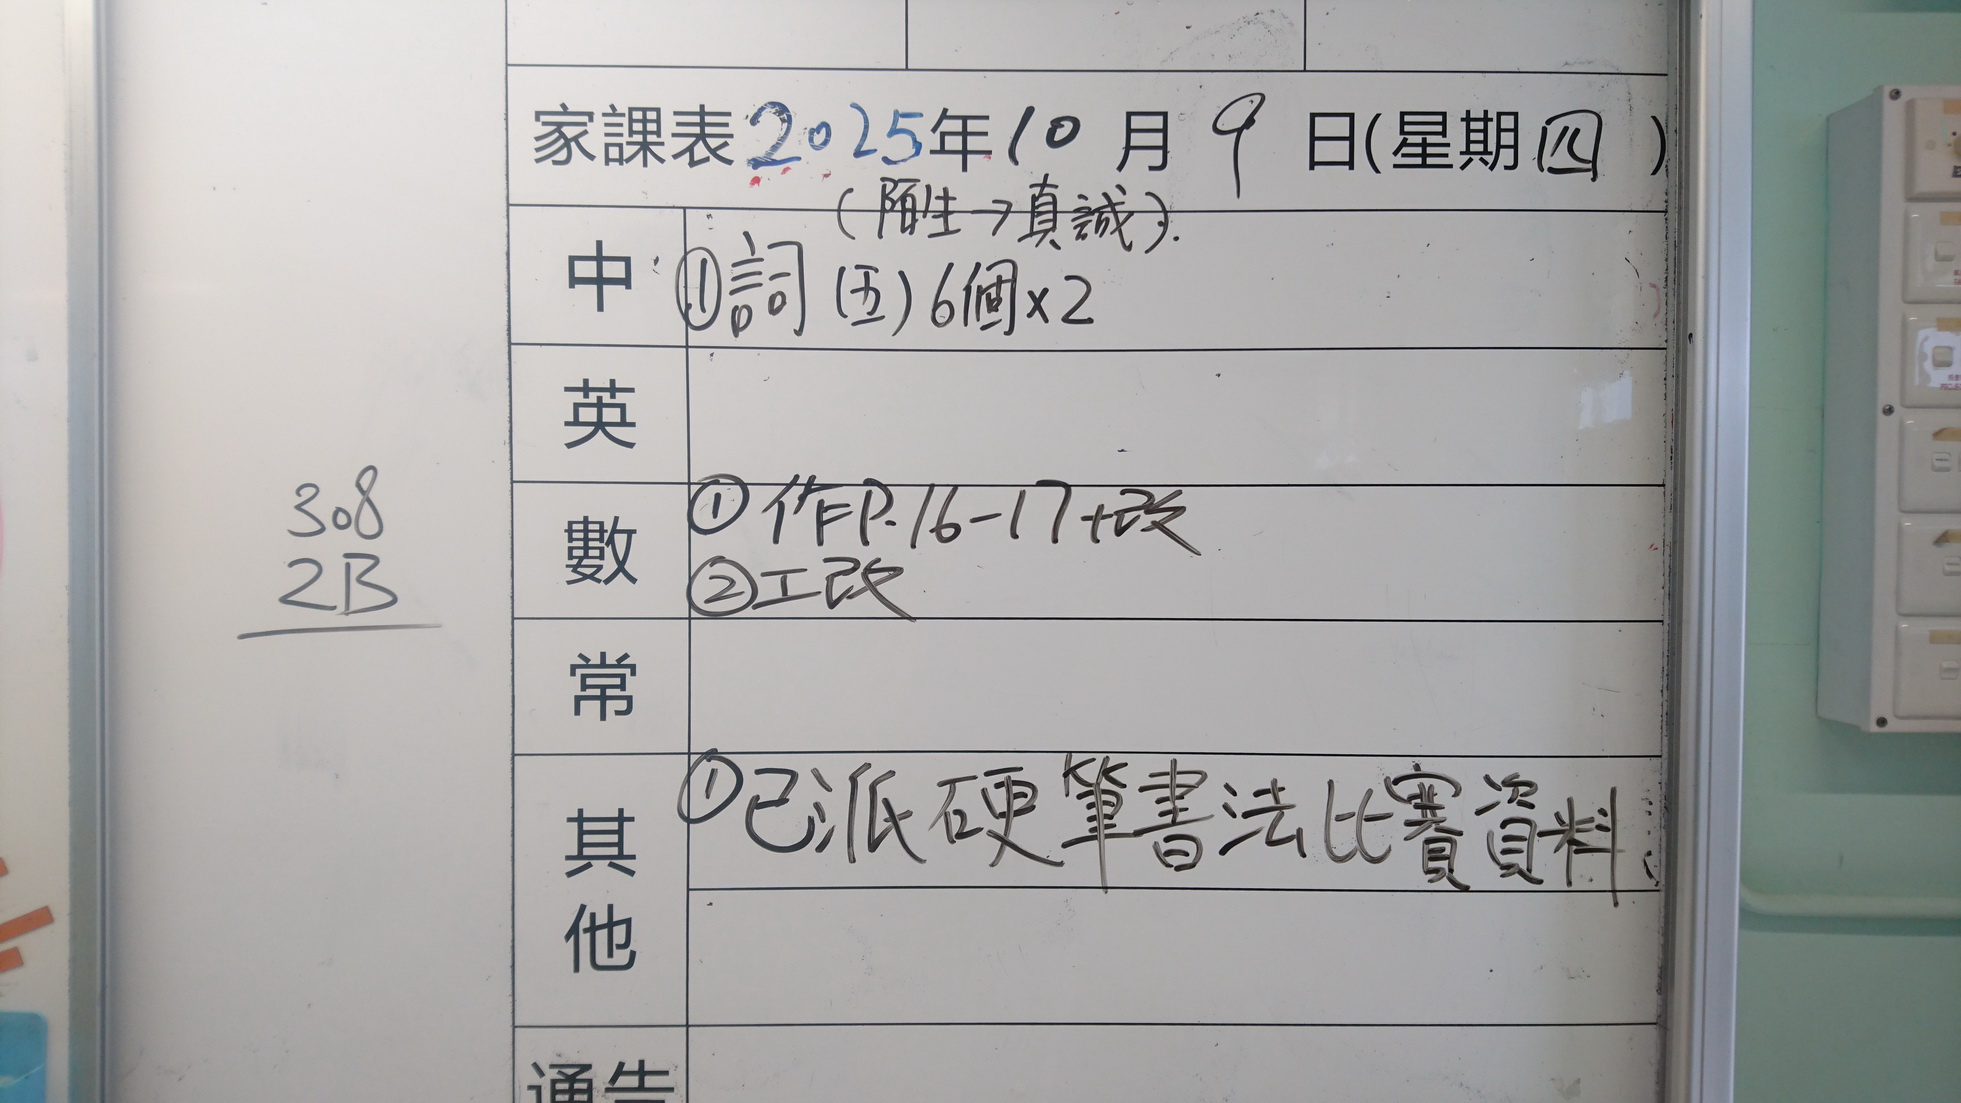 家課表2025年10月9日(星期四)
(陌生→真誠).
中 ①詞(五)6個x2
英
308
2B
數 ①作P.16-17+改
②工改
常
其他 ①已派硬筆書法比賽資料.
通告